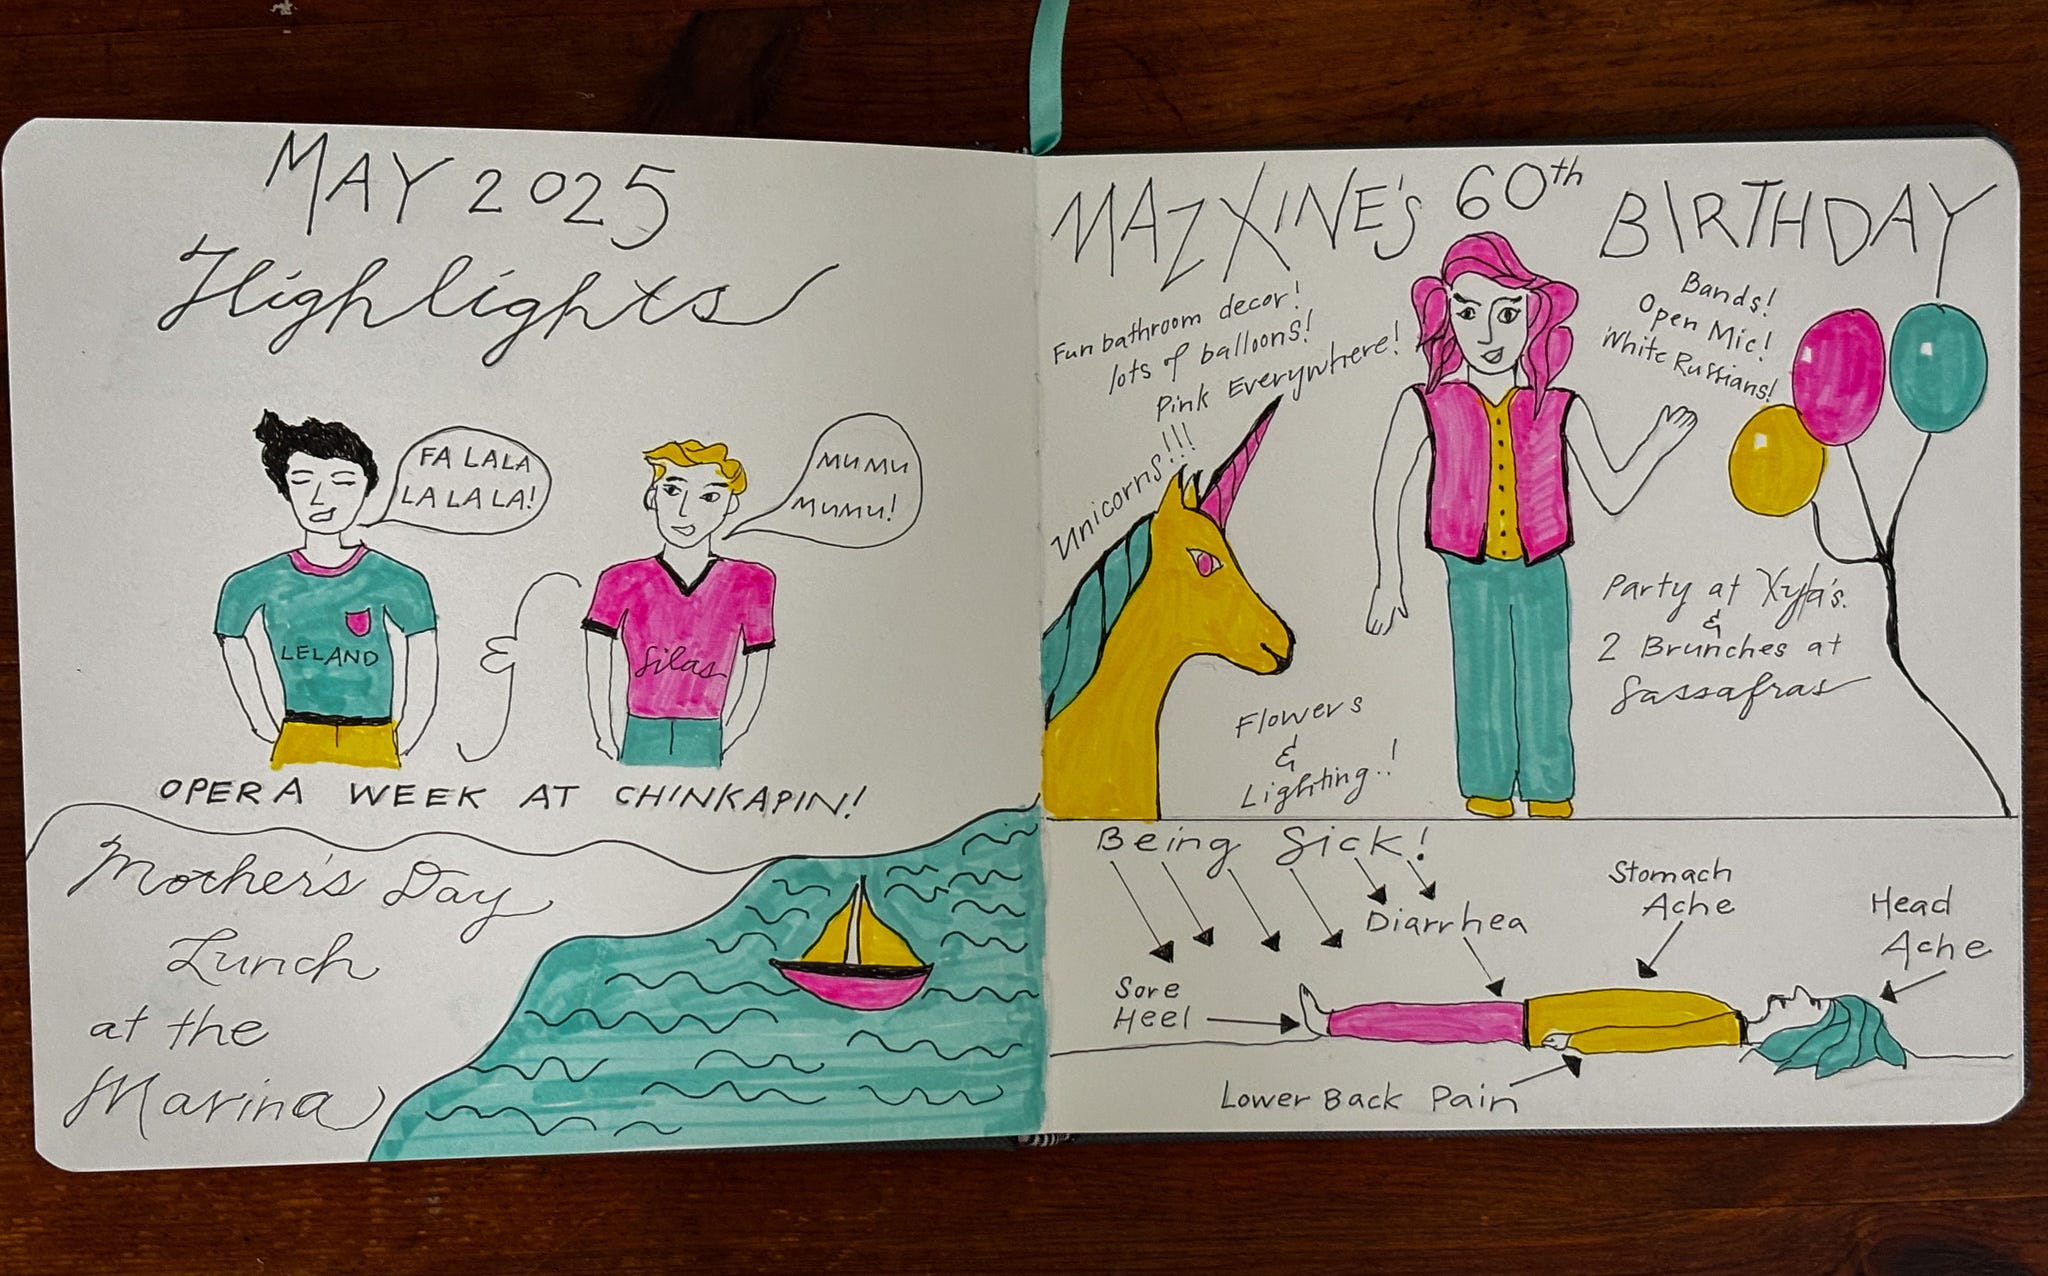 MAY 2025
Highlights
FA LALA
LA LA LA!
MU MU
MUMU!
LELAND
&
Silas
OPERA WEEK AT CHINKAPIN!
Mother's Day
Lunch
at the
Marina
MAZXINE'S 60th BIRTHDAY
Fun bathroom decor!
lots of balloons!
Pink Everywhere!
Unicorns!!!
Bands!
Open Mic!
White Russians!
Party at Xyla's.
&
2 Brunches at
Sassafras
Flowers
&
Lighting..!
Being Sick!
Diarrhea
Stomach
Ache
Head
Ache
Sore
Heel
Lower Back Pain